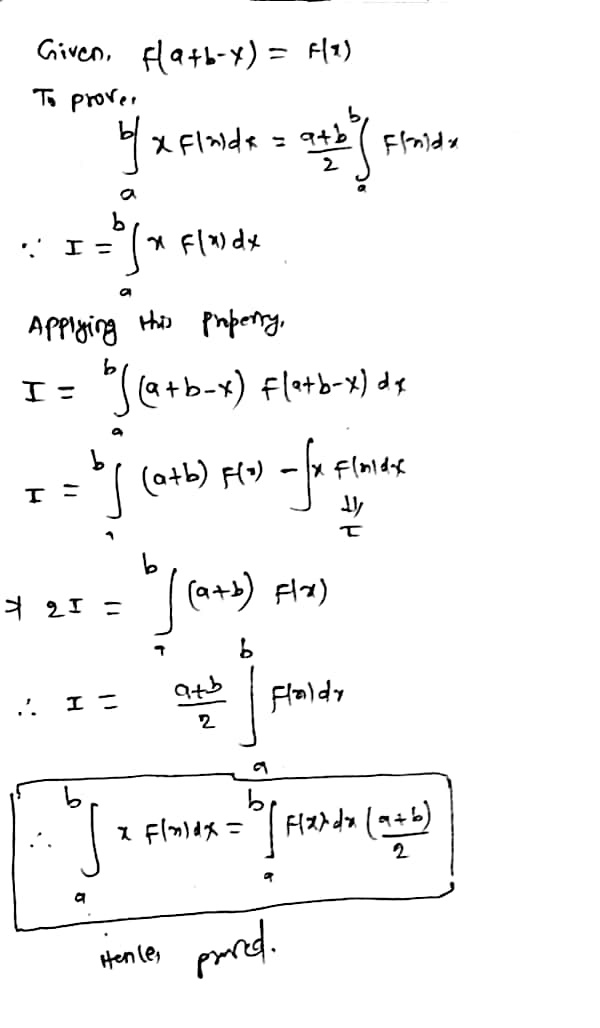 Given, F(a+b-x) = F(x)
To prove,
∫_a^b x F(x)dx = a+b/2 ∫_a^b F(x)dx
∵ I = ∫_a^b x F(x) dx
Applying this property,
I = ∫_a^b (a+b-x) F(a+b-x) dx
I = ∫_a^b (a+b) F(x) - ∫x F(x)dx
⇓
I
⇒ 2I = ∫_a^b (a+b) F(x)
∴ I = a+b/2 ∫_a^b F(x)dx
∴ ∫_a^b x F(x)dx = ∫_a^b F(x)dx (a+b)/2
Hence, proved.